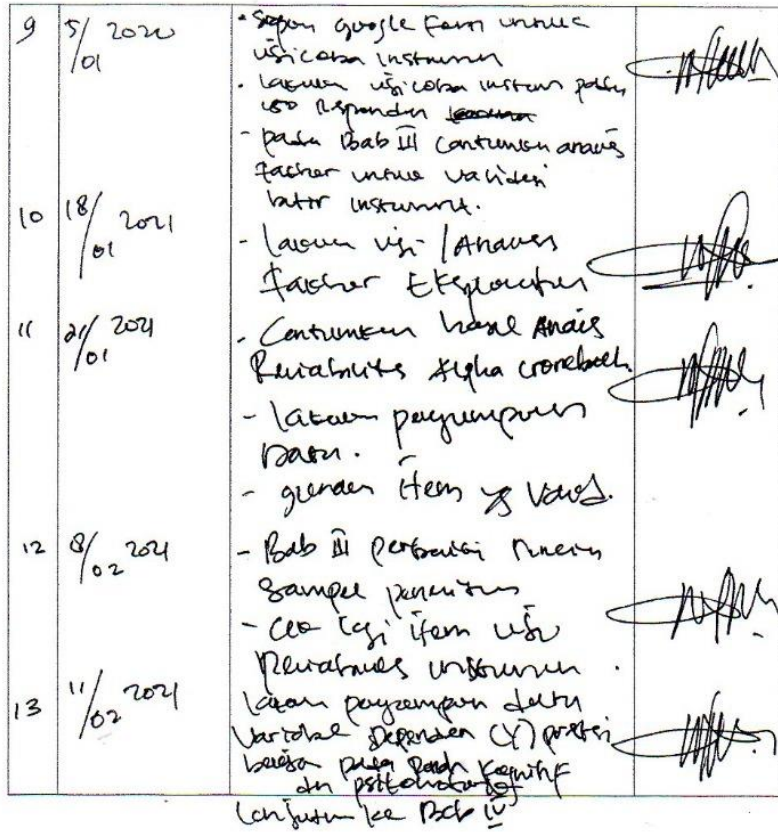 9 5/01 2020 - Siapkan google Form untuk
ujicoba instrumen
- Lakukan ujicoba instrumen pada
150 Responden
- pada Bab III cantumkan analisis
factor untuk validasi
butir instrumen.
10 18/01 2021 - Lakukan uji / Analisis
Factor Eksploratori
11 21/01 2021 - Cantumkan hasil Analisis
Reliabilitas Alpha cronbach
- Lakukan pengumpulan
Data.
- gunakan item yg Valid.
12 8/02 2021 - Bab III perbaiki
Sampel penelitian
- Cek lagi item uji
Reliabilitas instrumen.
13 11/02 2021 Lakukan pengumpulan data
Variabel Dependen (Y) prestasi
belajar pada Ranah Kognitif
dan psikomotorik
Lanjutkan ke Bab IV